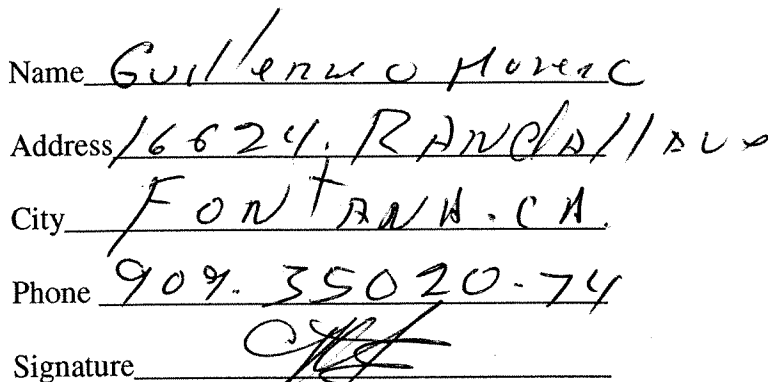 Name Guillermo Moreno
Address 16624. RANdAll AVe
City FONtANA. CA.
Phone 909. 35020-74
Signature